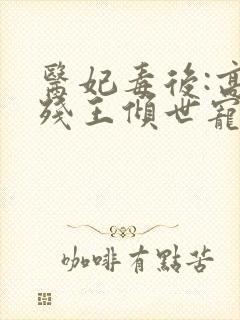 醫妃毒後:高
殘王傾世寵
咖啡有點苦